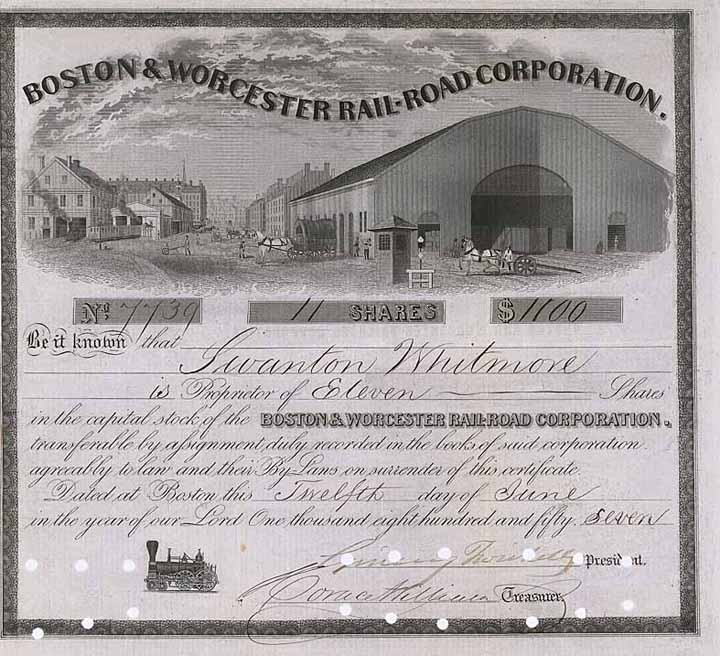 BOSTON & WORCESTER RAIL-ROAD CORPORATION.
No. 7739 11 SHARES $ 1100
Be it known that Swanton Whitmore
is Proprietor of Eleven Shares
in the capital stock of the BOSTON & WORCESTER RAIL-ROAD CORPORATION.
transferable by assignment, duly recorded in the books of said corporation
agreeably to law and their By-Laws on surrender of this certificate.
Dated at Boston this Twelfth day of June
in the year of our Lord One thousand eight hundred and fifty seven
President.
Treasurer.